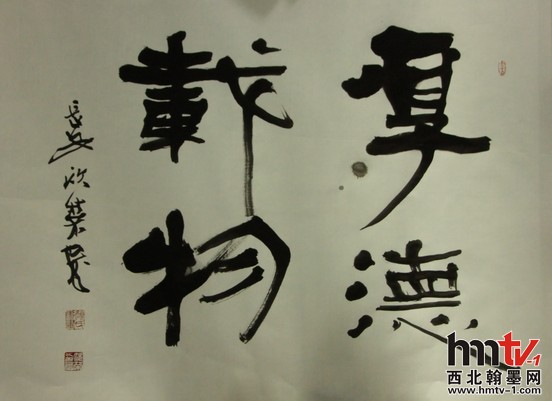 厚德
載物
長安
hmtv-1
西北翰墨网
www.hmtv-1.com